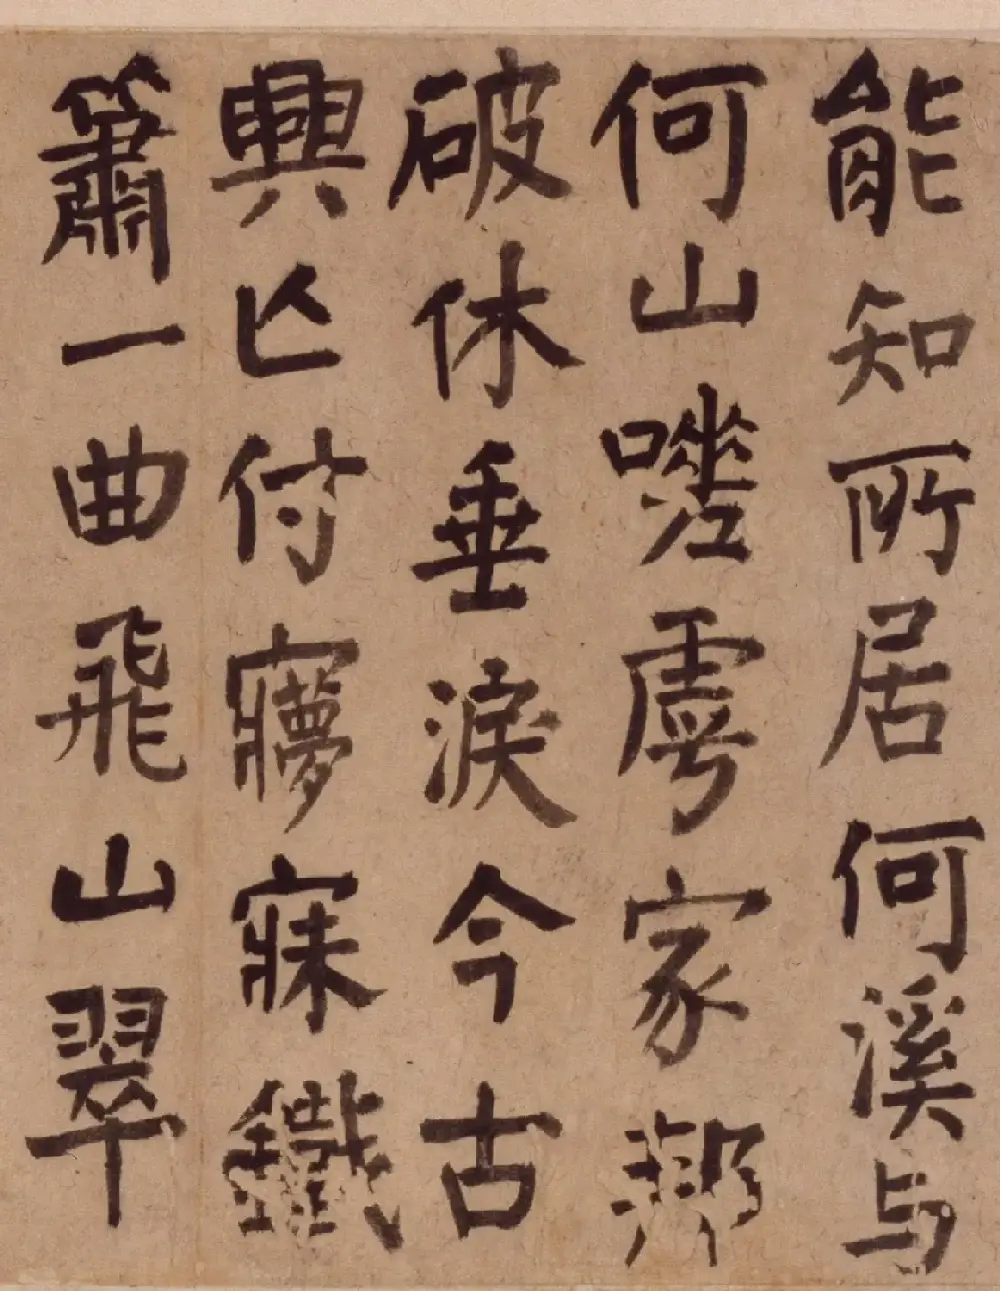 能知所居何溪与
何山嗟虖家邦
破休垂淚今古
興亾付㝱寐鐵
簫一曲飛山翠